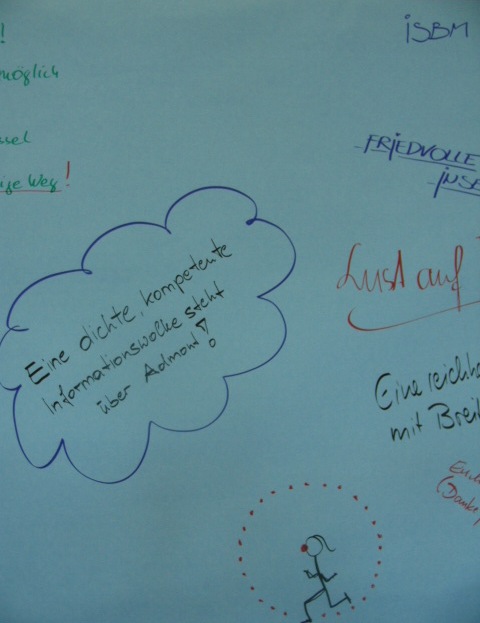 !
möglich
ige Weg!
iSBM
FRiEDVOLLE
iNSE
Lust auf
Eine dichte, kompetente
Informationswolke steht
über Admont!
Eine reichh
mit Breit
(Danke